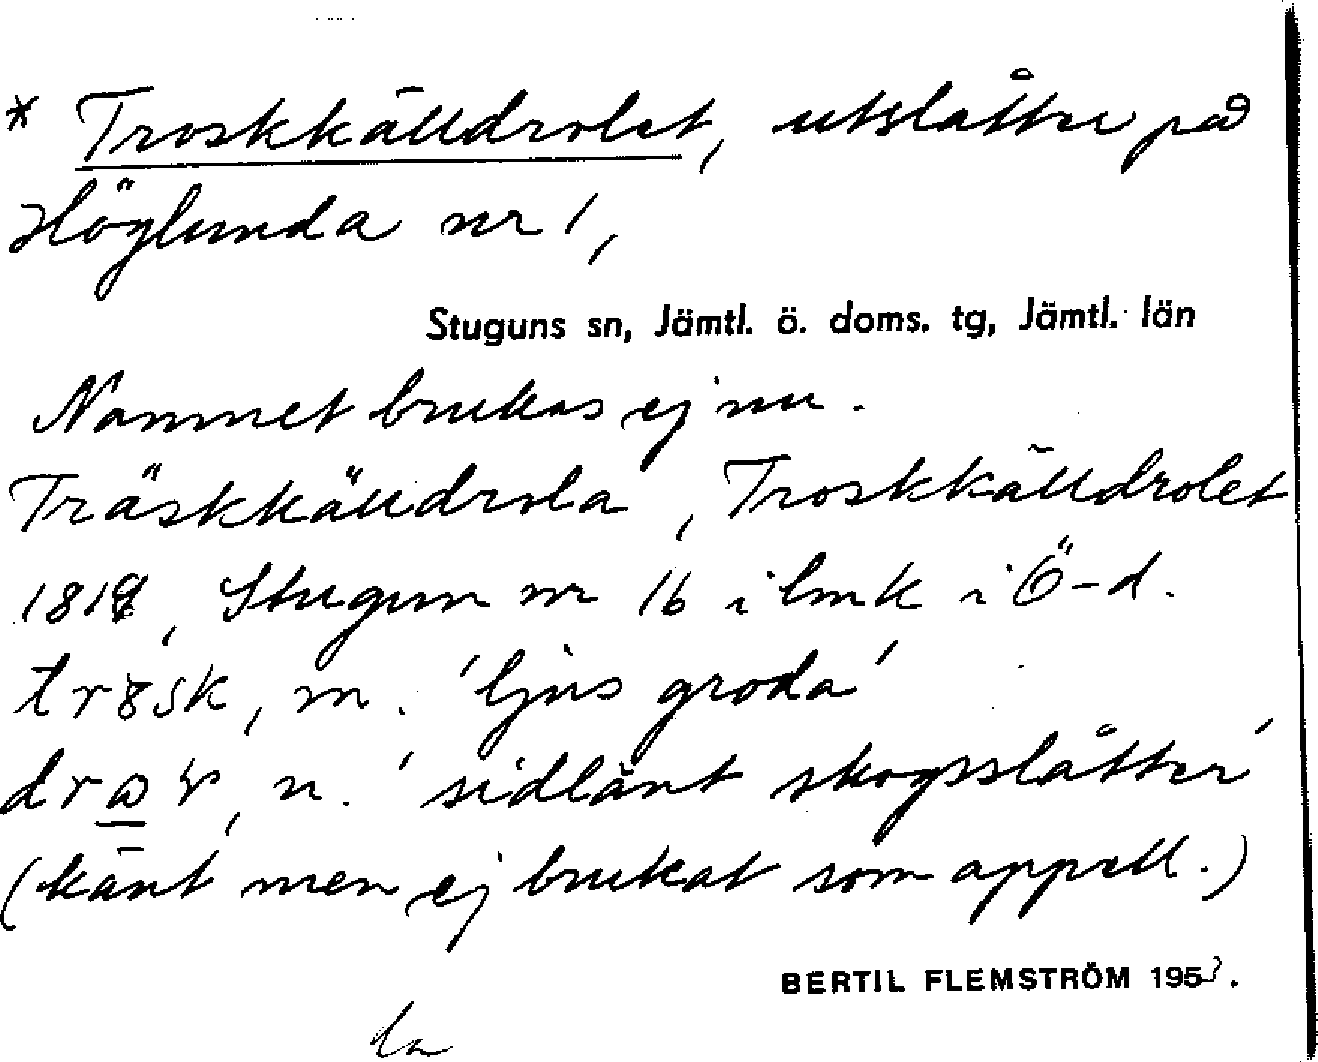 * Troskkälldrolet, utslåtter på
Höglunda nr 1,
Stuguns sn, Jämtl. ö. doms. tg, Jämtl. län
Namnet brukas ej nu.
Träskkälldrola, Troskkälldrolet
1818, Stugun nr 16 i lmk i Ö-d.
trɞsk, m. 'ljus groda'
drɷ̲ɽ, n. 'sidlänt skogsslåtter'
(känt men ej brukat som appell.)
BERTIL FLEMSTRÖM 195